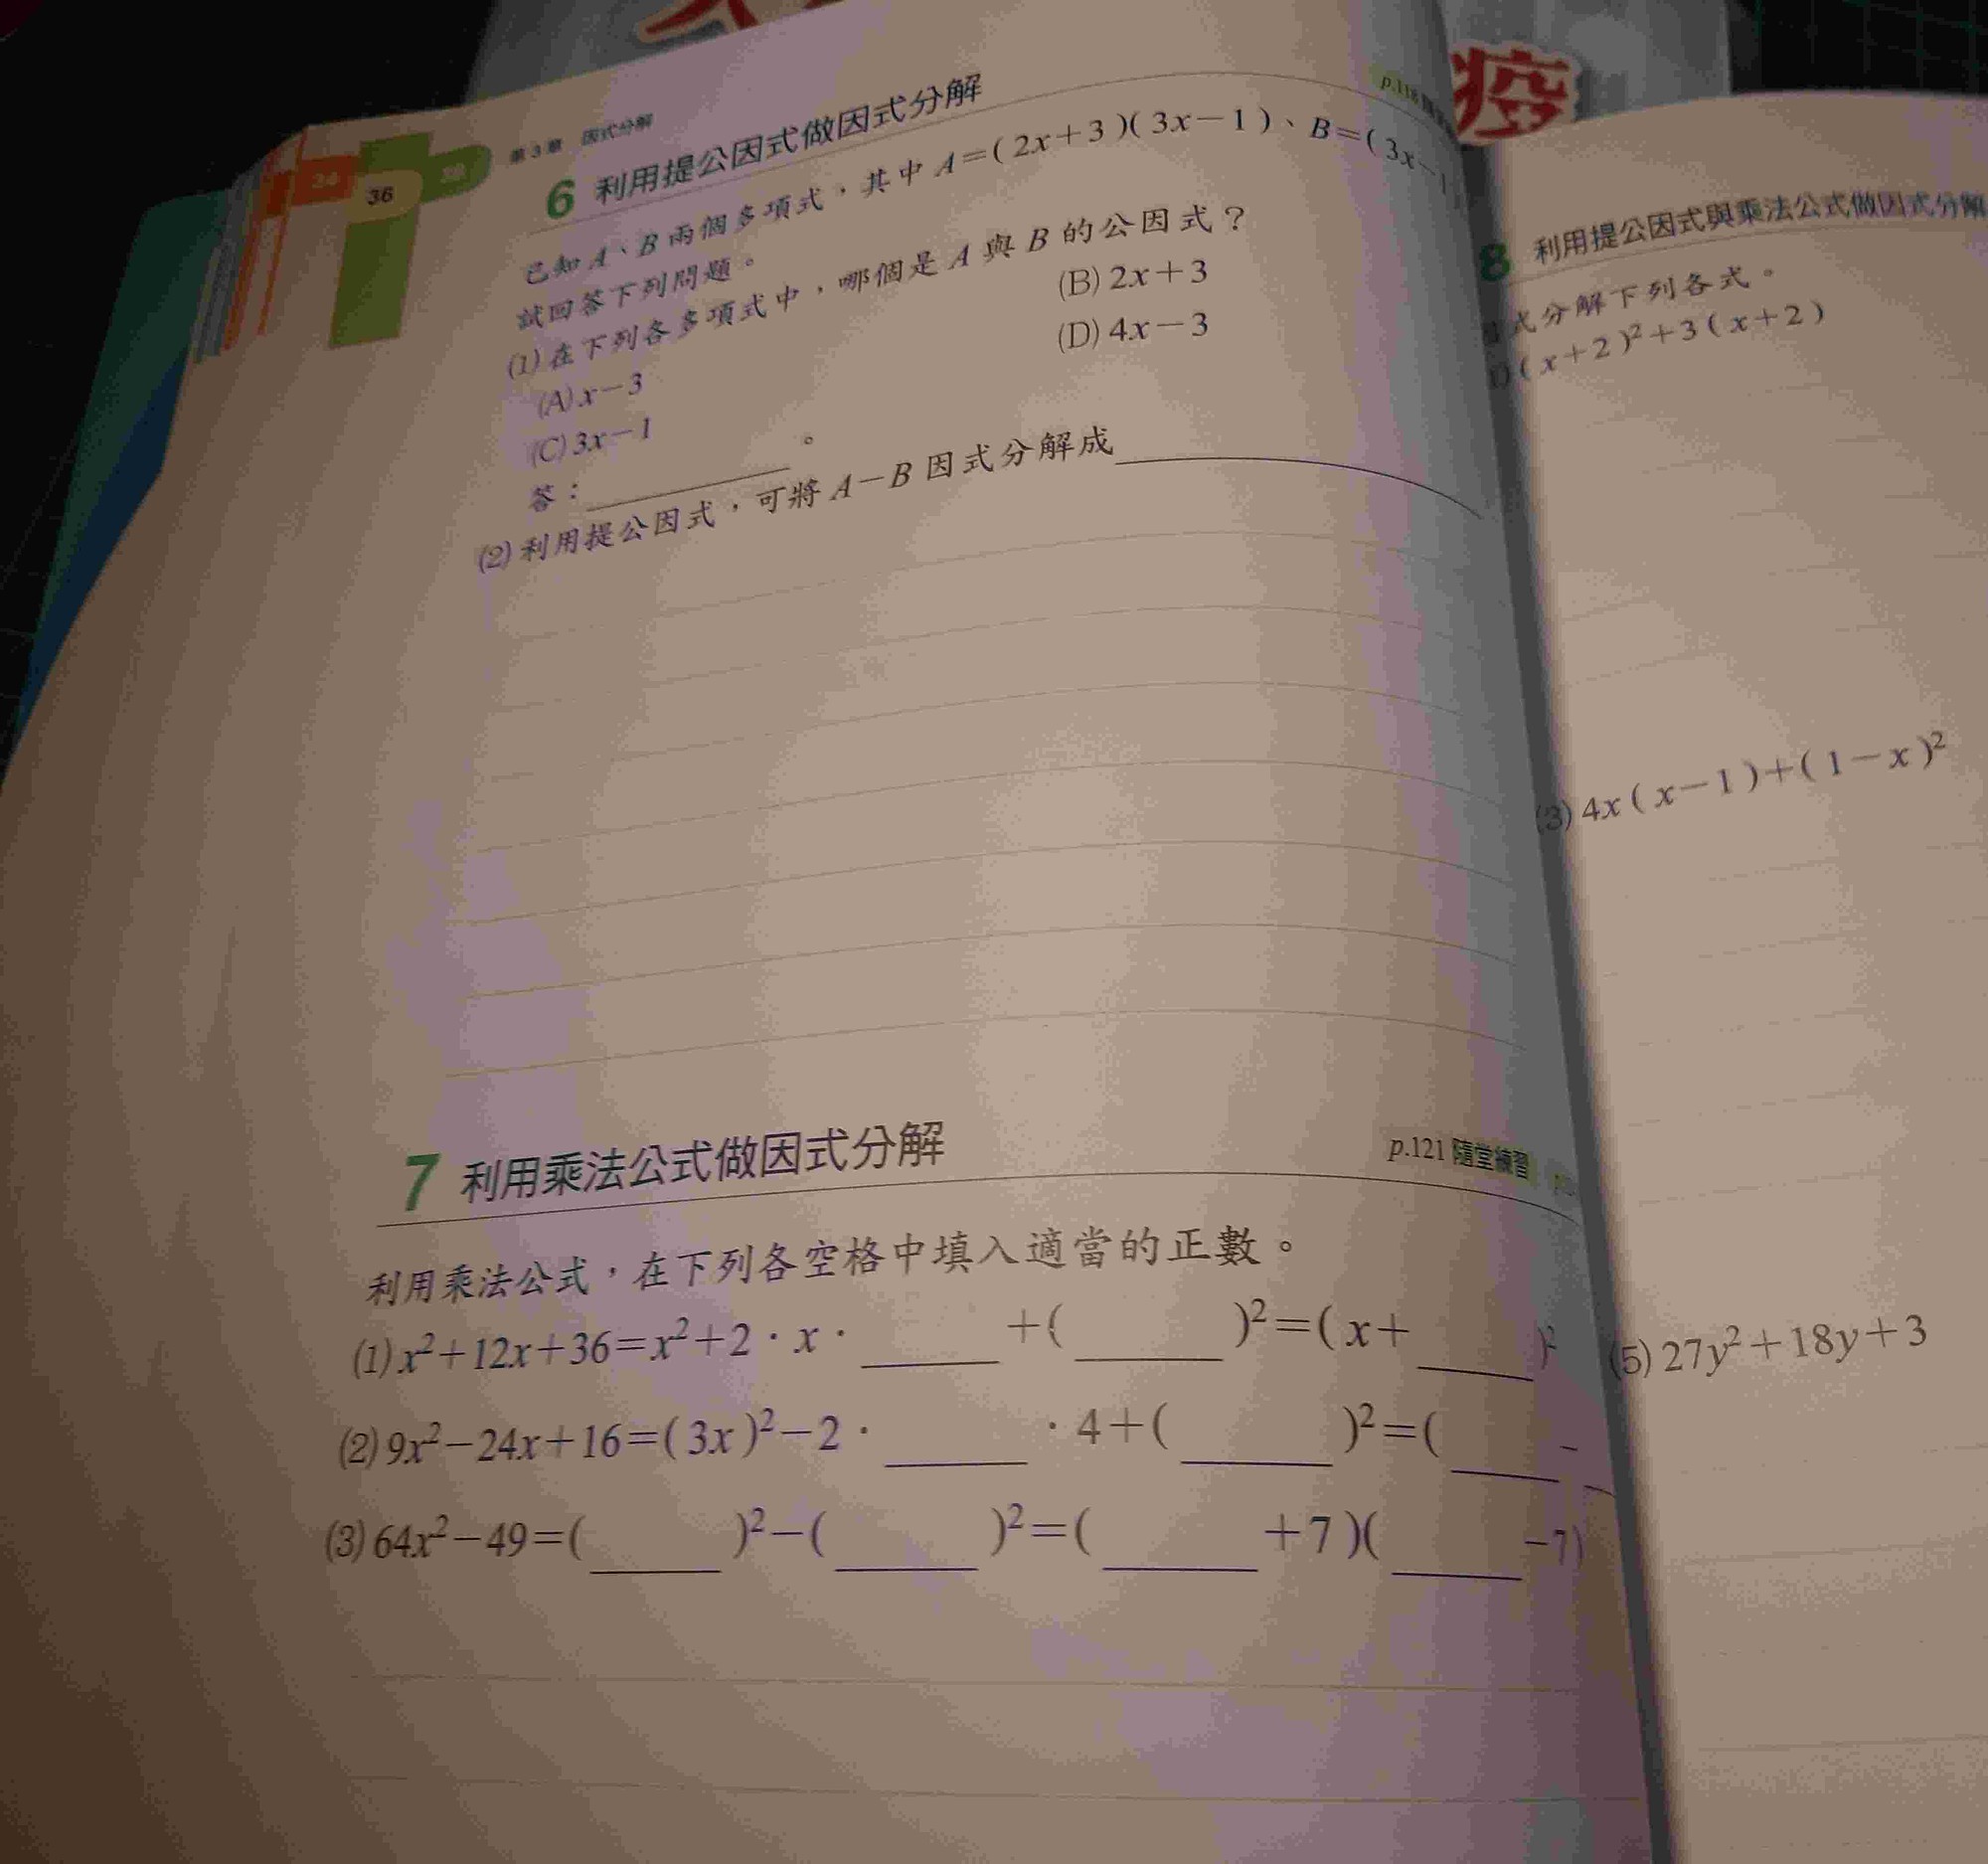 36
第3章 因式分解
6 利用提公因式做因式分解
p.118
已知A、B兩個多項式，其中A=(2x+3)(3x-1)、B=(3x-1
試回答下列問題。
(1)在下列各多項式中，哪個是A與B的公因式？
(A)x-3 (B)2x+3
(C)3x-1 (D)4x-3
答：＿＿＿＿。
(2)利用提公因式，可將A-B因式分解成＿＿＿＿
7 利用乘法公式做因式分解
p.121 隨堂練習
利用乘法公式，在下列各空格中填入適當的正數。
(1)x²+12x+36=x²+2·x·____+(____)²=(x+____)²
(2)9x²-24x+16=(3x)²-2·____·4+(____)²=(____-
(3)64x²-49=(____)²-(____)²=(____+7)(____-7)
疫
8 利用提公因式與乘法公式做因式分解
式分解下列各式。
(x+2)²+3(x+2)
(3)4x(x-1)+(1-x)²
(5)27y²+18y+3